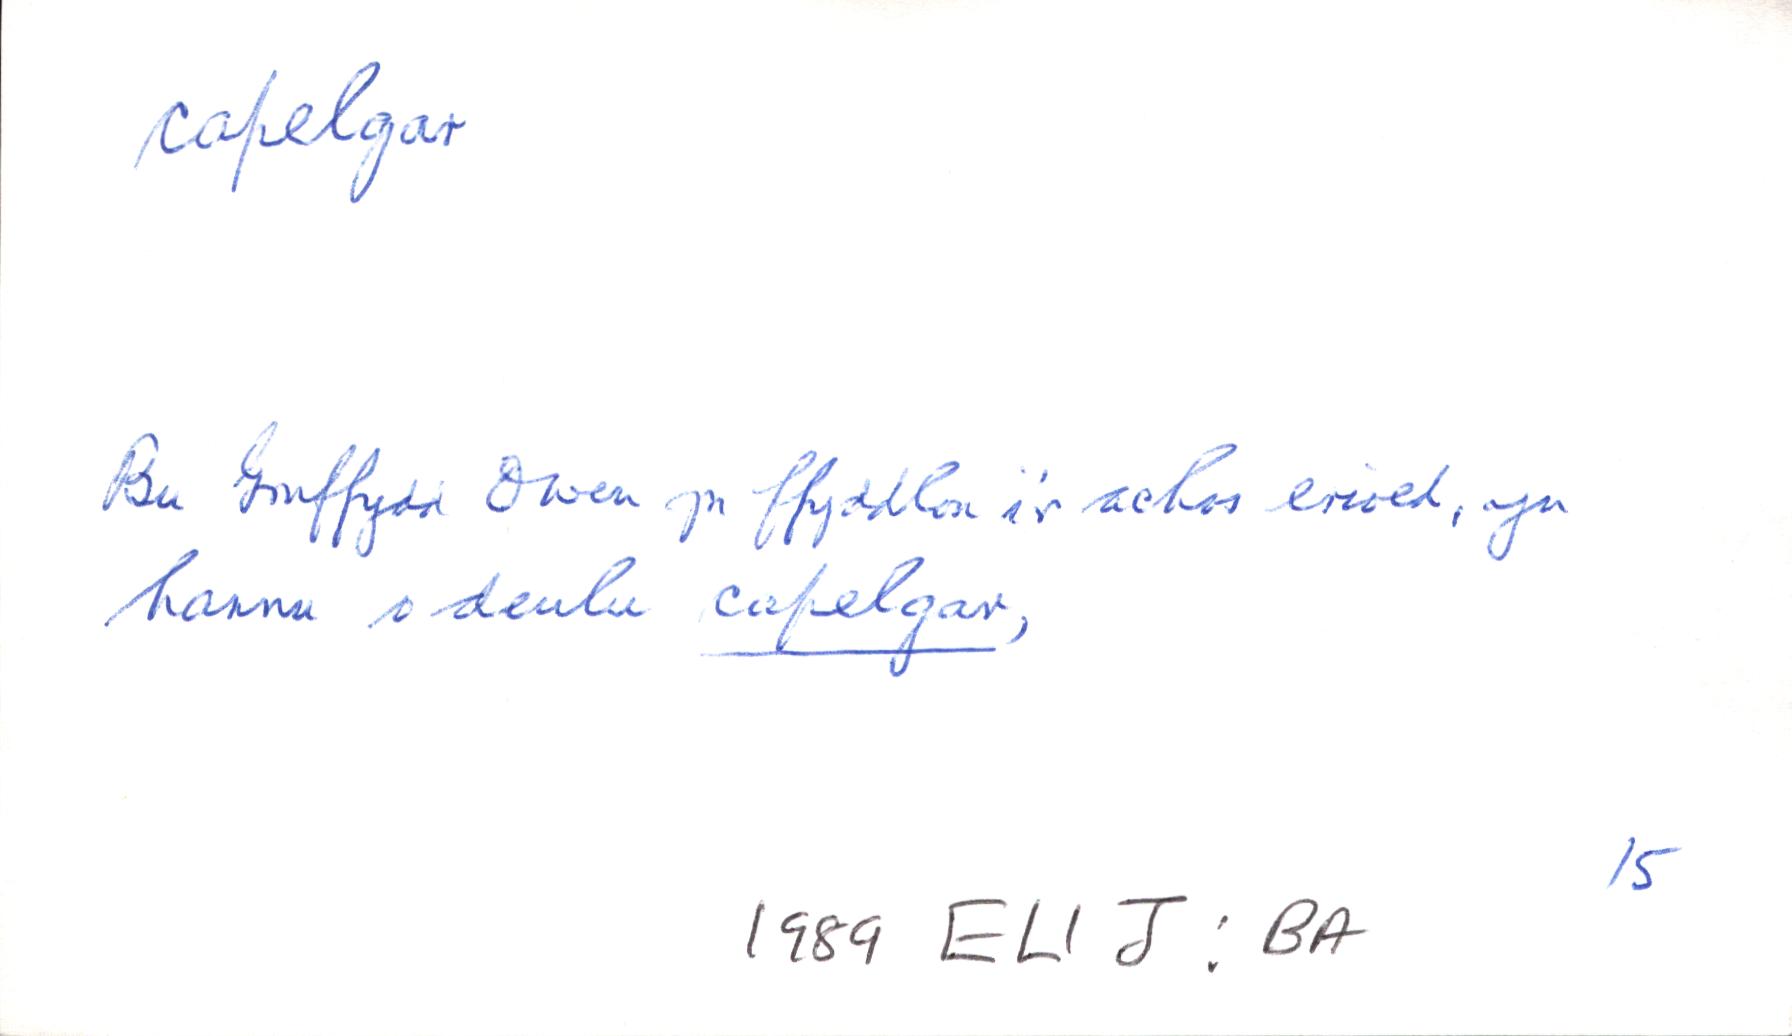 capelgar
Bu Gruffydd Owen yn ffyddlon i'r achos erioed, yn
hannu o deulu capelgar,
15
1989 ELI J: BA